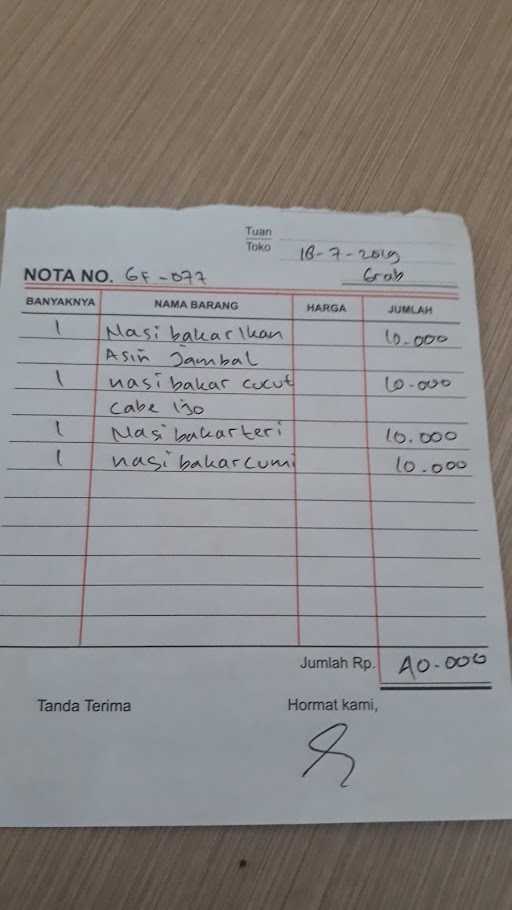 Tuan
Toko
18-7-2019
NOTA NO. GF-077
Grab
BANYAKNYA NAMA BARANG HARGA JUMLAH
1 Nasi bakar Ikan 10.000
Asin Jambal
1 nasi bakar cucut 10.000
Cabe Ijo
1 Nasi bakar teri 10.000
1 nasi bakar cumi 10.000
Jumlah Rp. 40.000
Tanda Terima Hormat kami,